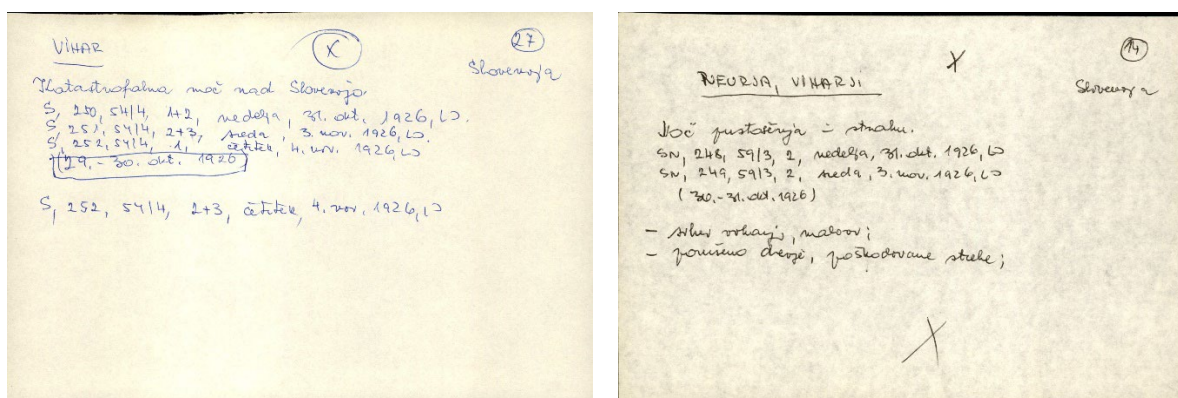 VIHAR
X
27
Slovenija
Katastrofalna noč nad Slovenijo.
S, 250, 54/4, 1+2, nedelja, 31. okt. 1926, LJ.
S, 251, 54/4, 2+3, sreda, 3. nov. 1926, LJ.
S, 252, 54/4, 1, četrtek, 4. nov. 1926, LJ
(29.-30. okt. 1926)
S, 252, 54/4, 2+3, četrtek, 4. nov. 1926, LJ
X
14
NEURJA, VIHARJI
Slovenija
Noč pustošenja i strahu.
SN, 248, 59/3, 2, nedelja, 31. okt. 1926, LJ
SN, 249, 59/3, 2, sreda, 3. nov. 1926, LJ
(30.-31. okt. 1926)
- vihar
- porušeno drevje, poškodovane strehe;
X